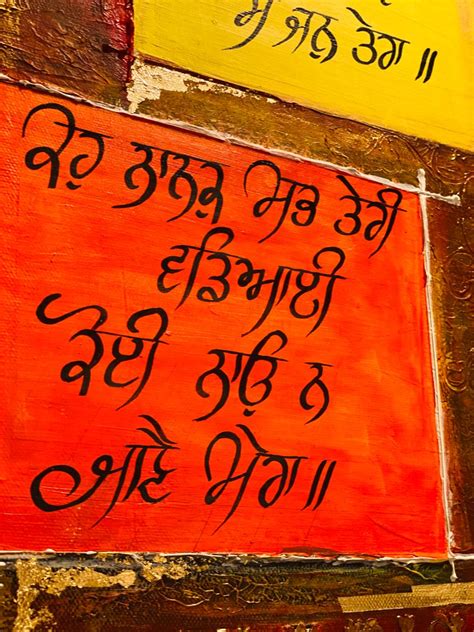 ਜਨੁ ਤੇਰਾ ॥
ਕਹੁ ਨਾਨਕ ਸਭ ਤੇਰੀ
ਵਡਿਆਈ
ਕੋਈ ਨਾਉ ਨ
ਜਾਣੈ ਮੇਰਾ ॥